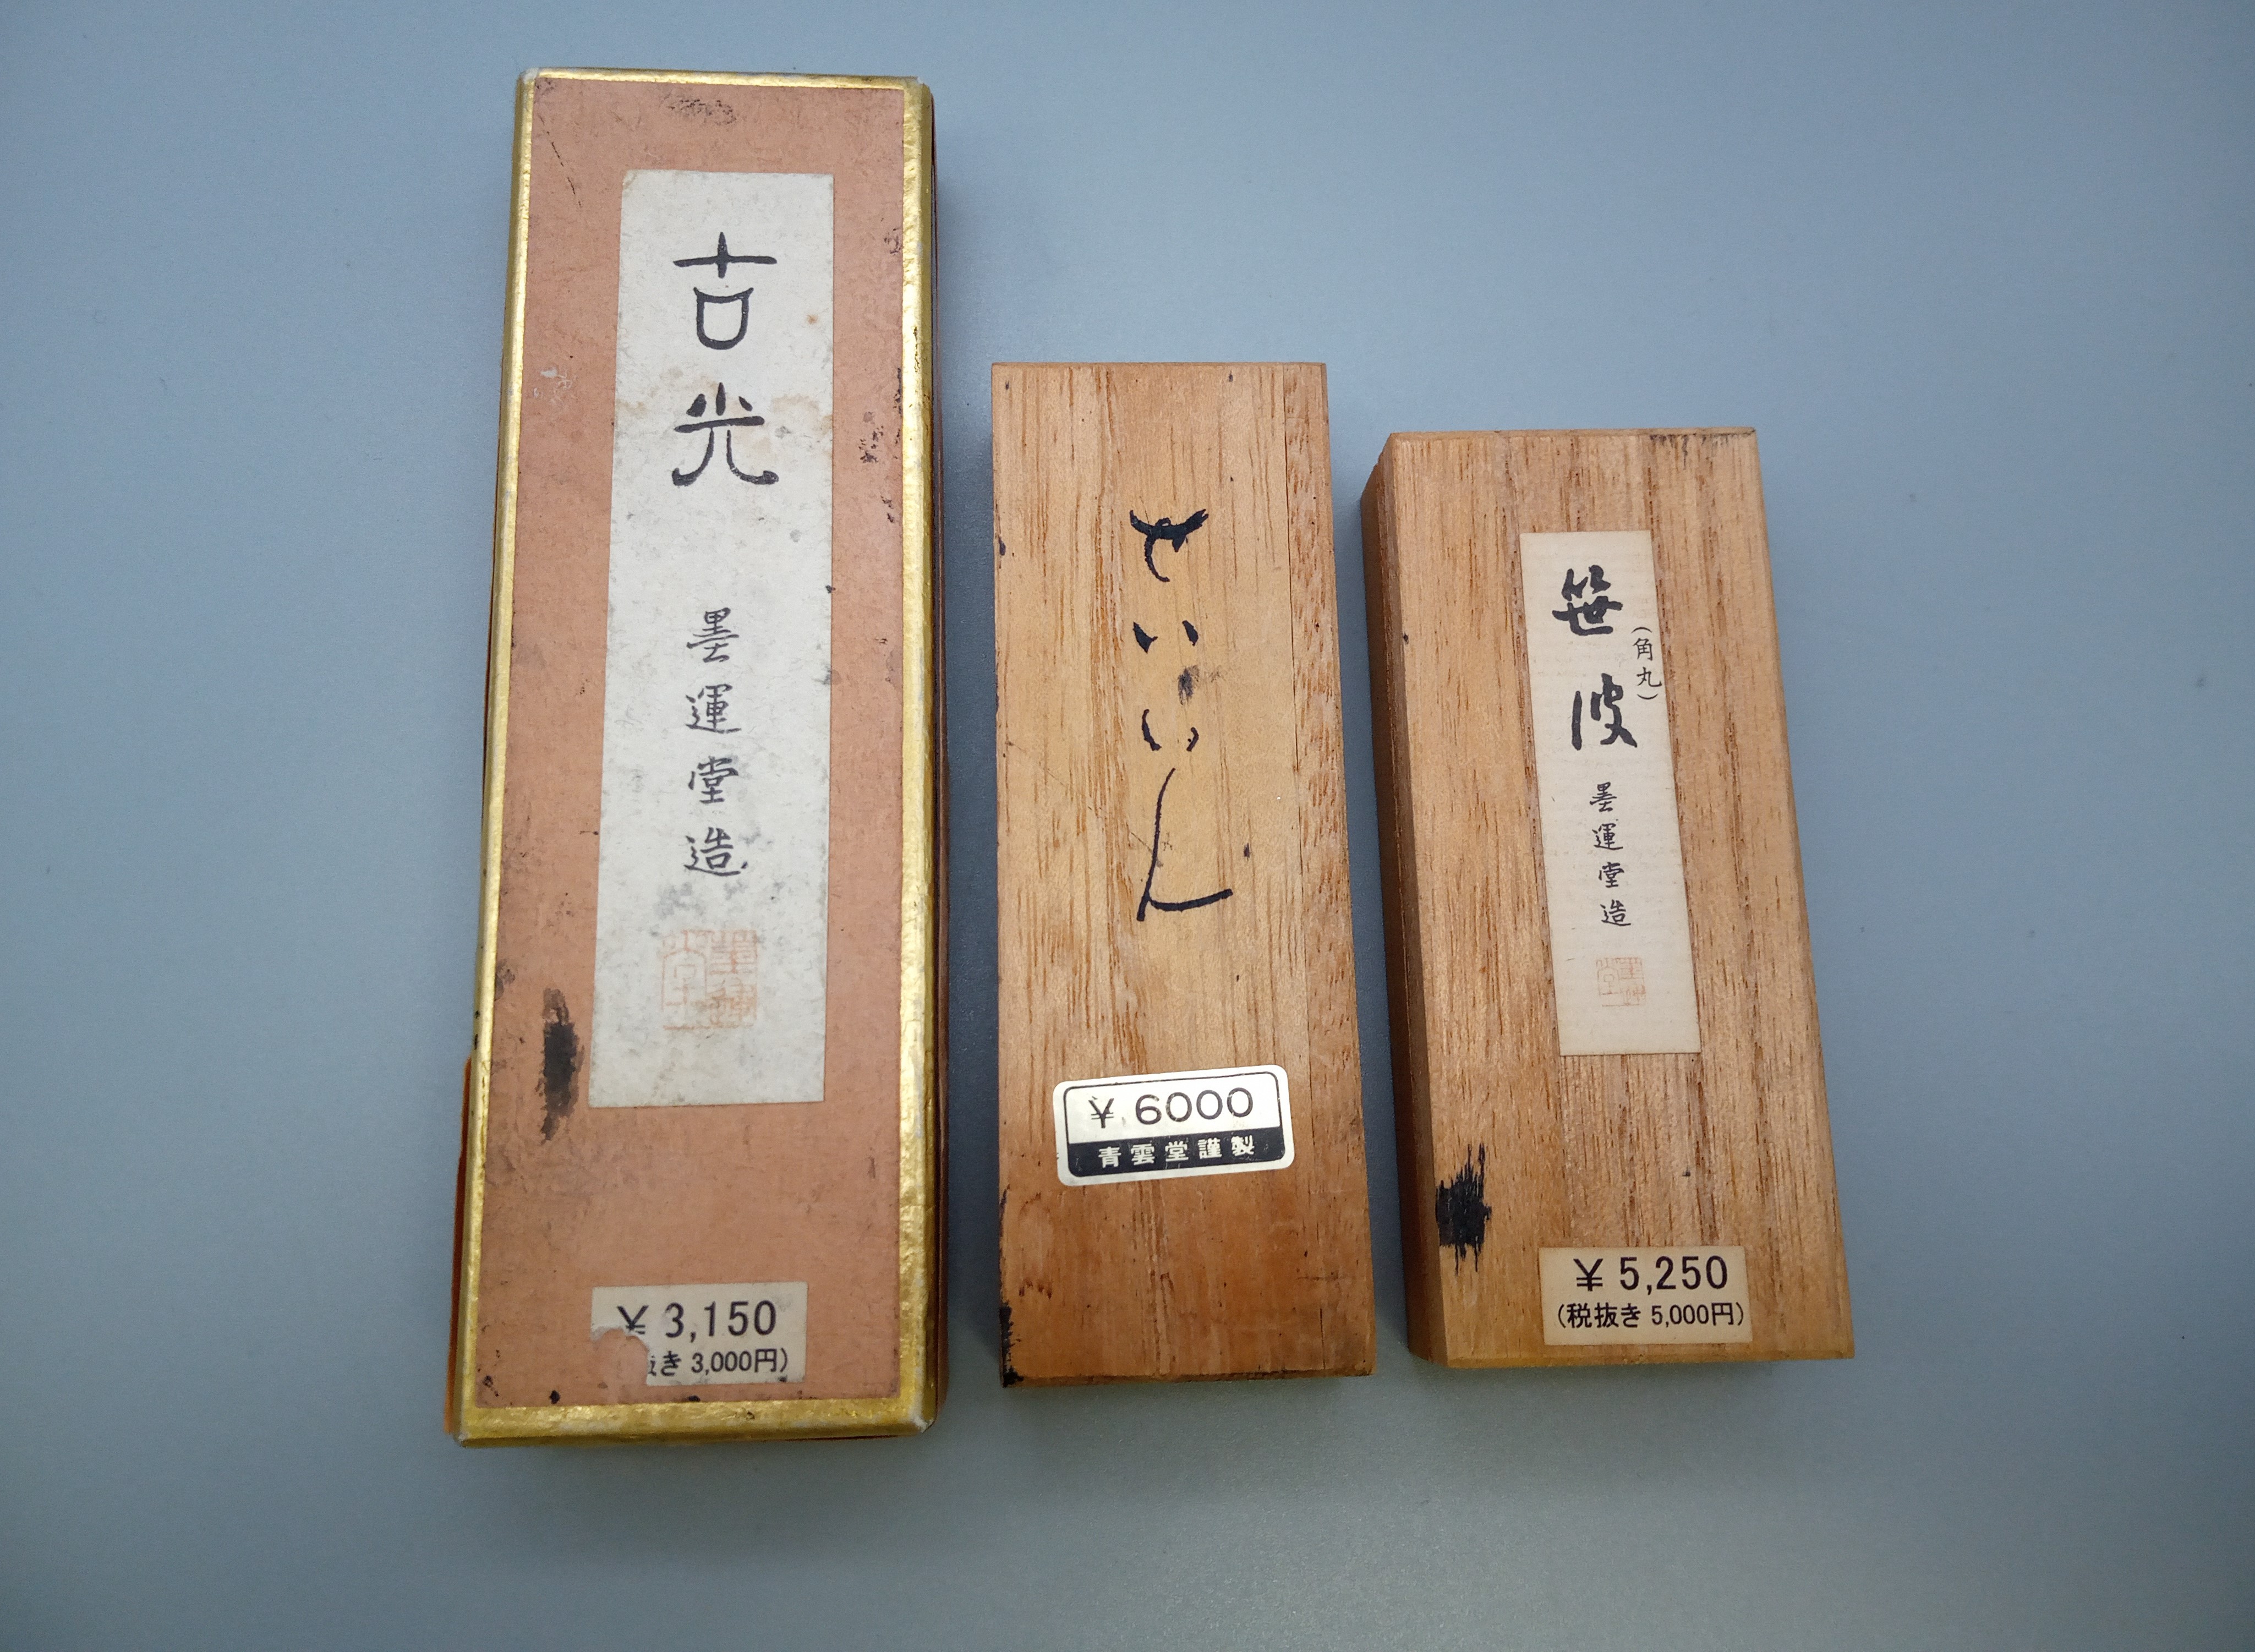 古光
墨運堂造
¥3,150
き 3,000円)
せいいん
¥6000
青雲堂謹製
笹波
(角丸)
墨運堂造
¥5,250
(税抜き 5,000円)